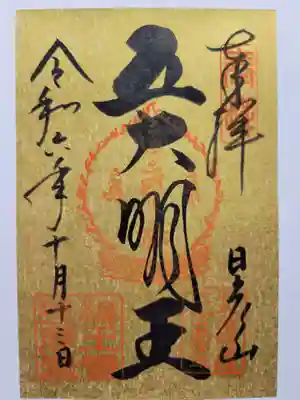 奉拝
日光山
五大明王
令和六年十月十三日